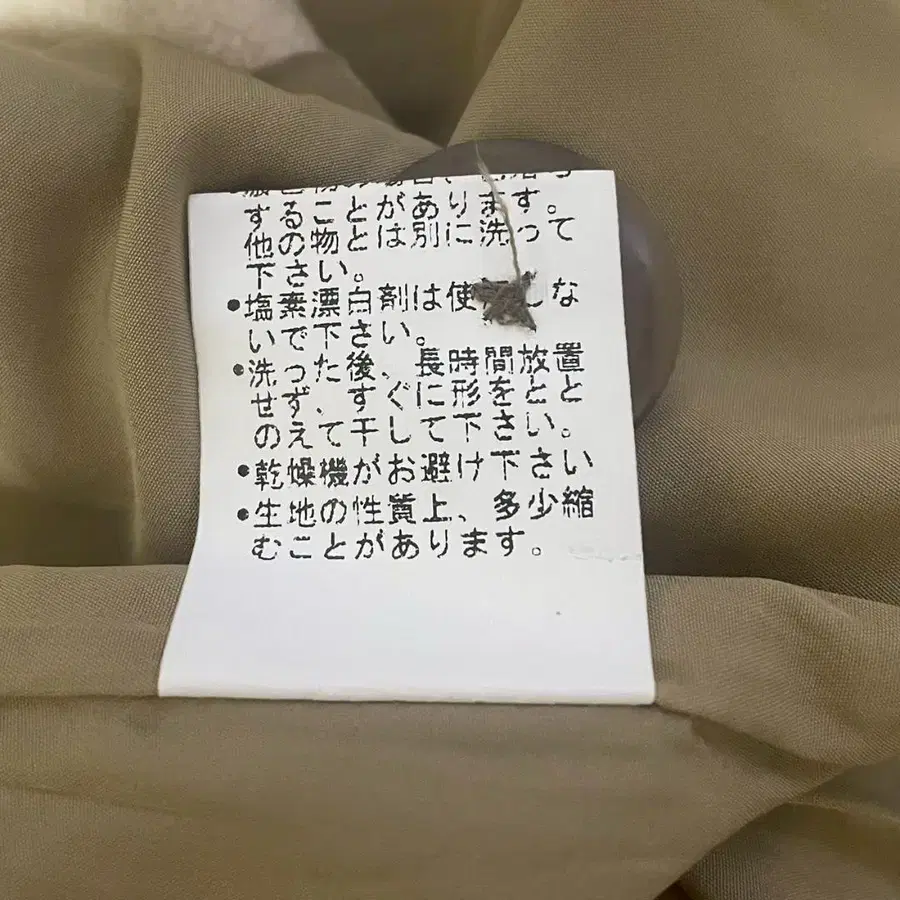 することがあります。
他の物とは別に洗って
下さい。
•塩素漂白剤は使 しな
いで下さい。
•洗った後、長時間放置
せず、すぐに形をと
のえて干して下さい。
•乾燥機がお避け下さい
•生地の性質上、多少縮
むことがあります。